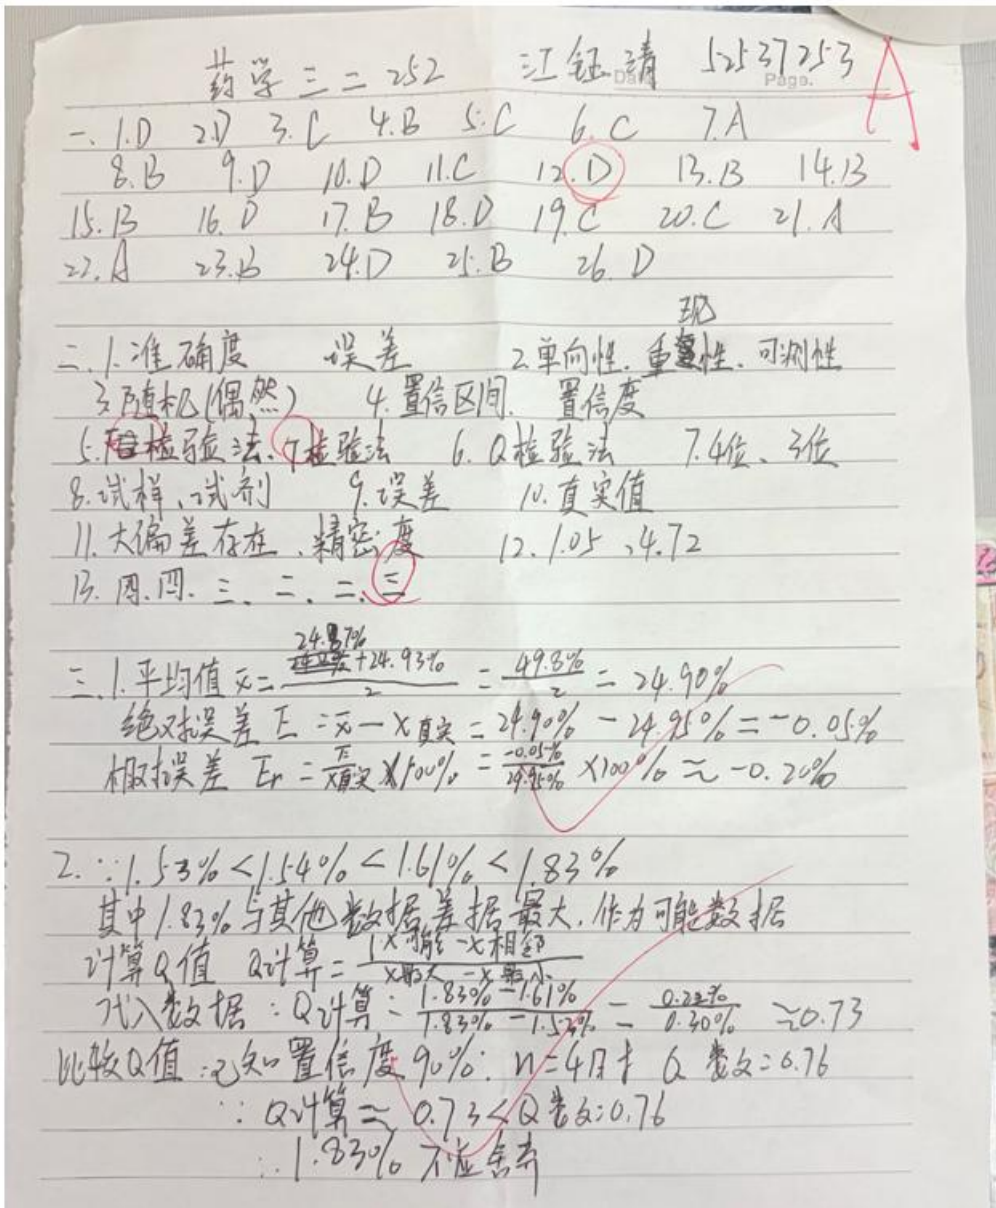 药学三二252 江钰清 52537253
Date. Page.
A
一. 1.D 2.D 3.C 4.B 5.C 6.C 7.A
8.B 9.D 10.D 11.C 12.D 13.B 14.B
15.B 16.D 17.B 18.D 19.C 20.C 21.A
22.A 23.B 24.D 25.B 26.D
二. 1.准确度 误差 2.单向性. 重现性. 可测性
3.随机(偶然) 4.置信区间. 置信度
5. 检验法. T检验法 6.Q检验法 7.4位、3位
8.试样、试剂 9.误差 10.真实值
11.大偏差存在、精密度 12.1.05、4.72
13.四.四.三、二、二、三
三.1.平均值 x̄= (24.87%+24.93%)/2 = 49.8%/2 = 24.90%
绝对误差 E = x̄ - x真实 = 24.90% - 24.95% = -0.05%
相对误差 Er = E/x真实 ×100% = -0.05%/24.95% ×100% ≈ -0.20%
2. ∵1.53%<1.54%<1.61%<1.83%
其中1.83%与其他数据差据最大,作为可能数据
计算Q值 Q计算= |x可能-x相邻/x最大-x最小
代入数据:Q计算= 1.83%-1.61%/1.83%-1.53% = 0.22%/0.30% ≈0.73
比较Q值:已知置信度90%: n=4时 Q表=0.76
∵Q计算≈0.73<Q表=0.76
∴1.83%不应舍弃